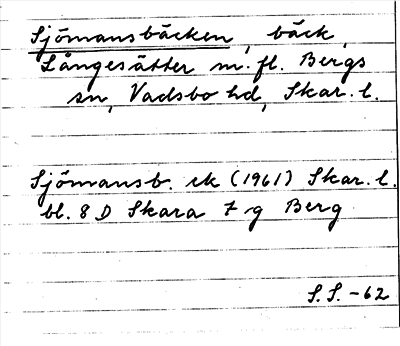 Sjömansbäcken, bäck,
Långesätter m. fl. Bergs
sn, Vadsbo hd, Skar. l.
Sjömansb. ek (1961) Skar. l.
bl. 8 D Skara 7 g Berg
S.S. -62